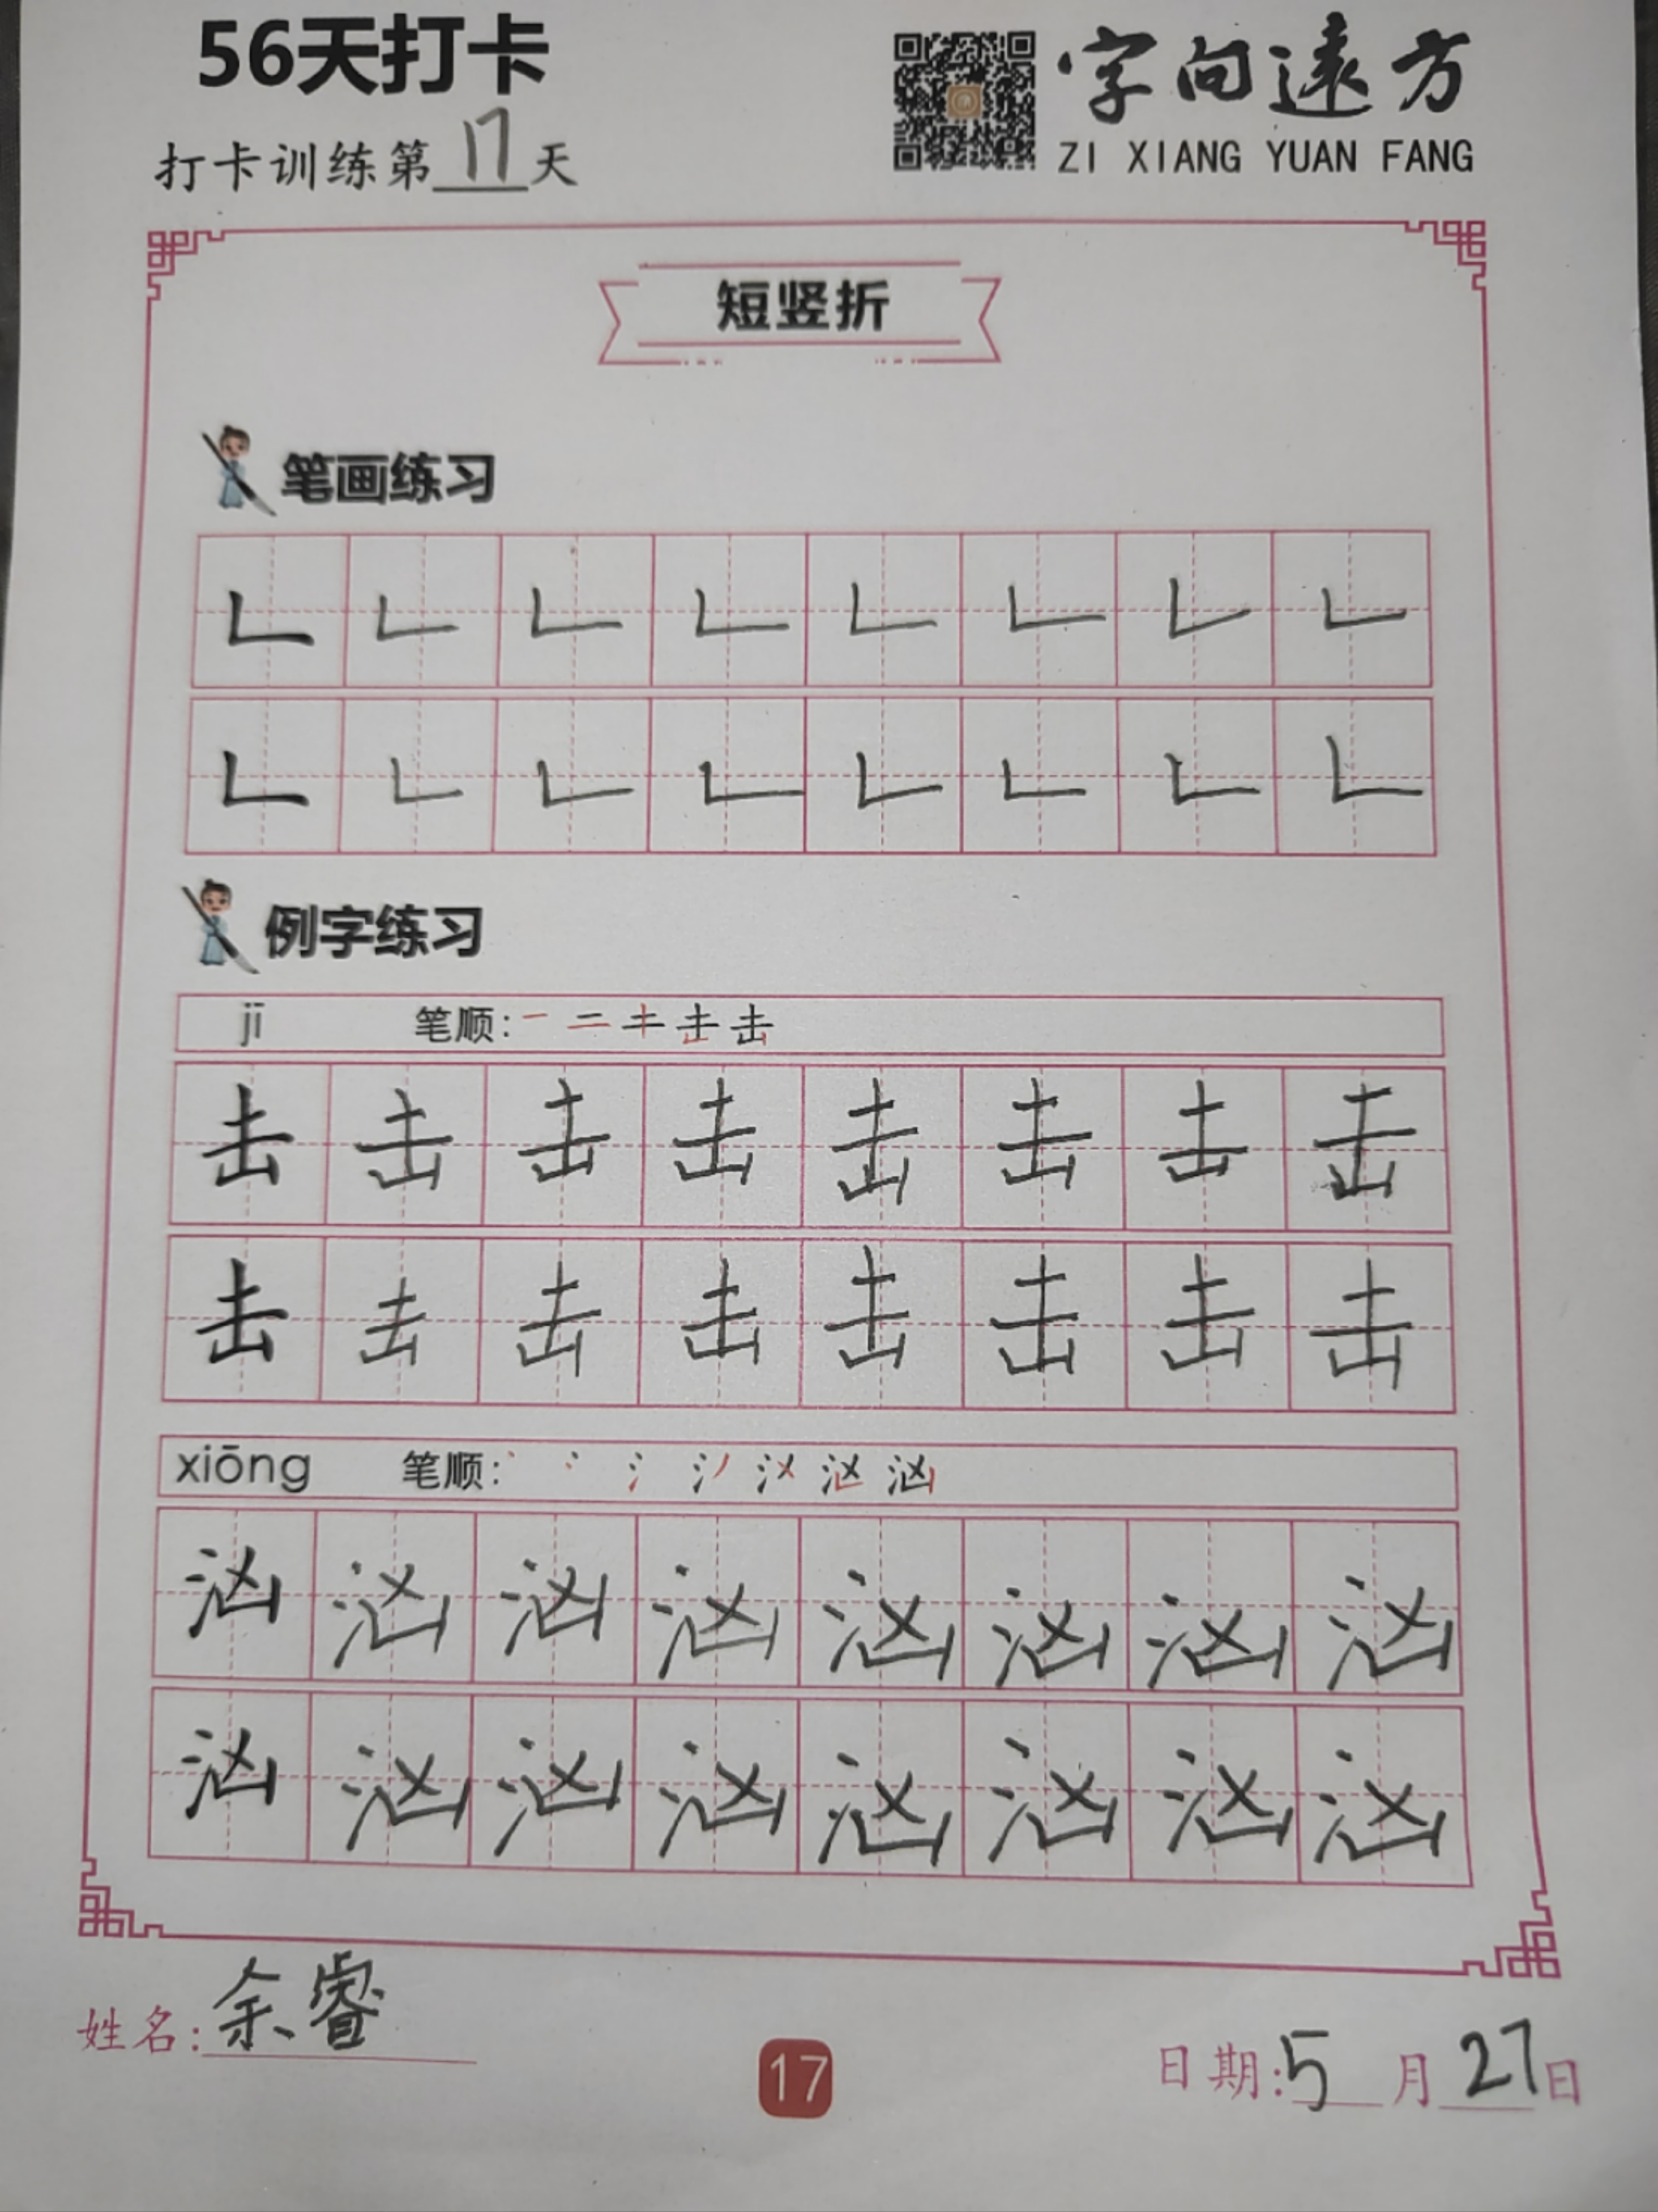 56天打卡
字向远方
打卡训练第17天
ZI XIANG YUAN FANG
短竖折
笔画练习
㇗ ㇗ ㇗ ㇗ ㇗ ㇗ ㇗ ㇗
㇗ ㇗ ㇗ ㇗ ㇗ ㇗ ㇗ ㇗
例字练习
jī 笔顺: 一 二 キ 击 击
击 击 击 击 击 击 击 击
击 击 击 击 击 击 击 击
xiōng 笔顺: 丶 冫 氵 汹
汹 汹 汹 汹 汹 汹 汹 汹
汹 汹 汹 汹 汹 汹 汹 汹
姓名:余睿
17
日期:5月27日